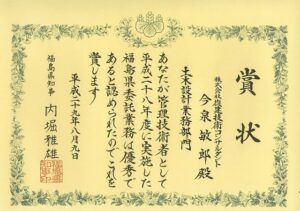 賞状
土木設計業務部門
株式会社復建技術コンサルタント
今泉敏郎殿
あなたが管理技術者として
平成二十八年度に実施した
福島県委託業務は優秀で
あると認められたのでこれを
賞します
平成二十九年八月九日
福島県知事
内堀雅雄